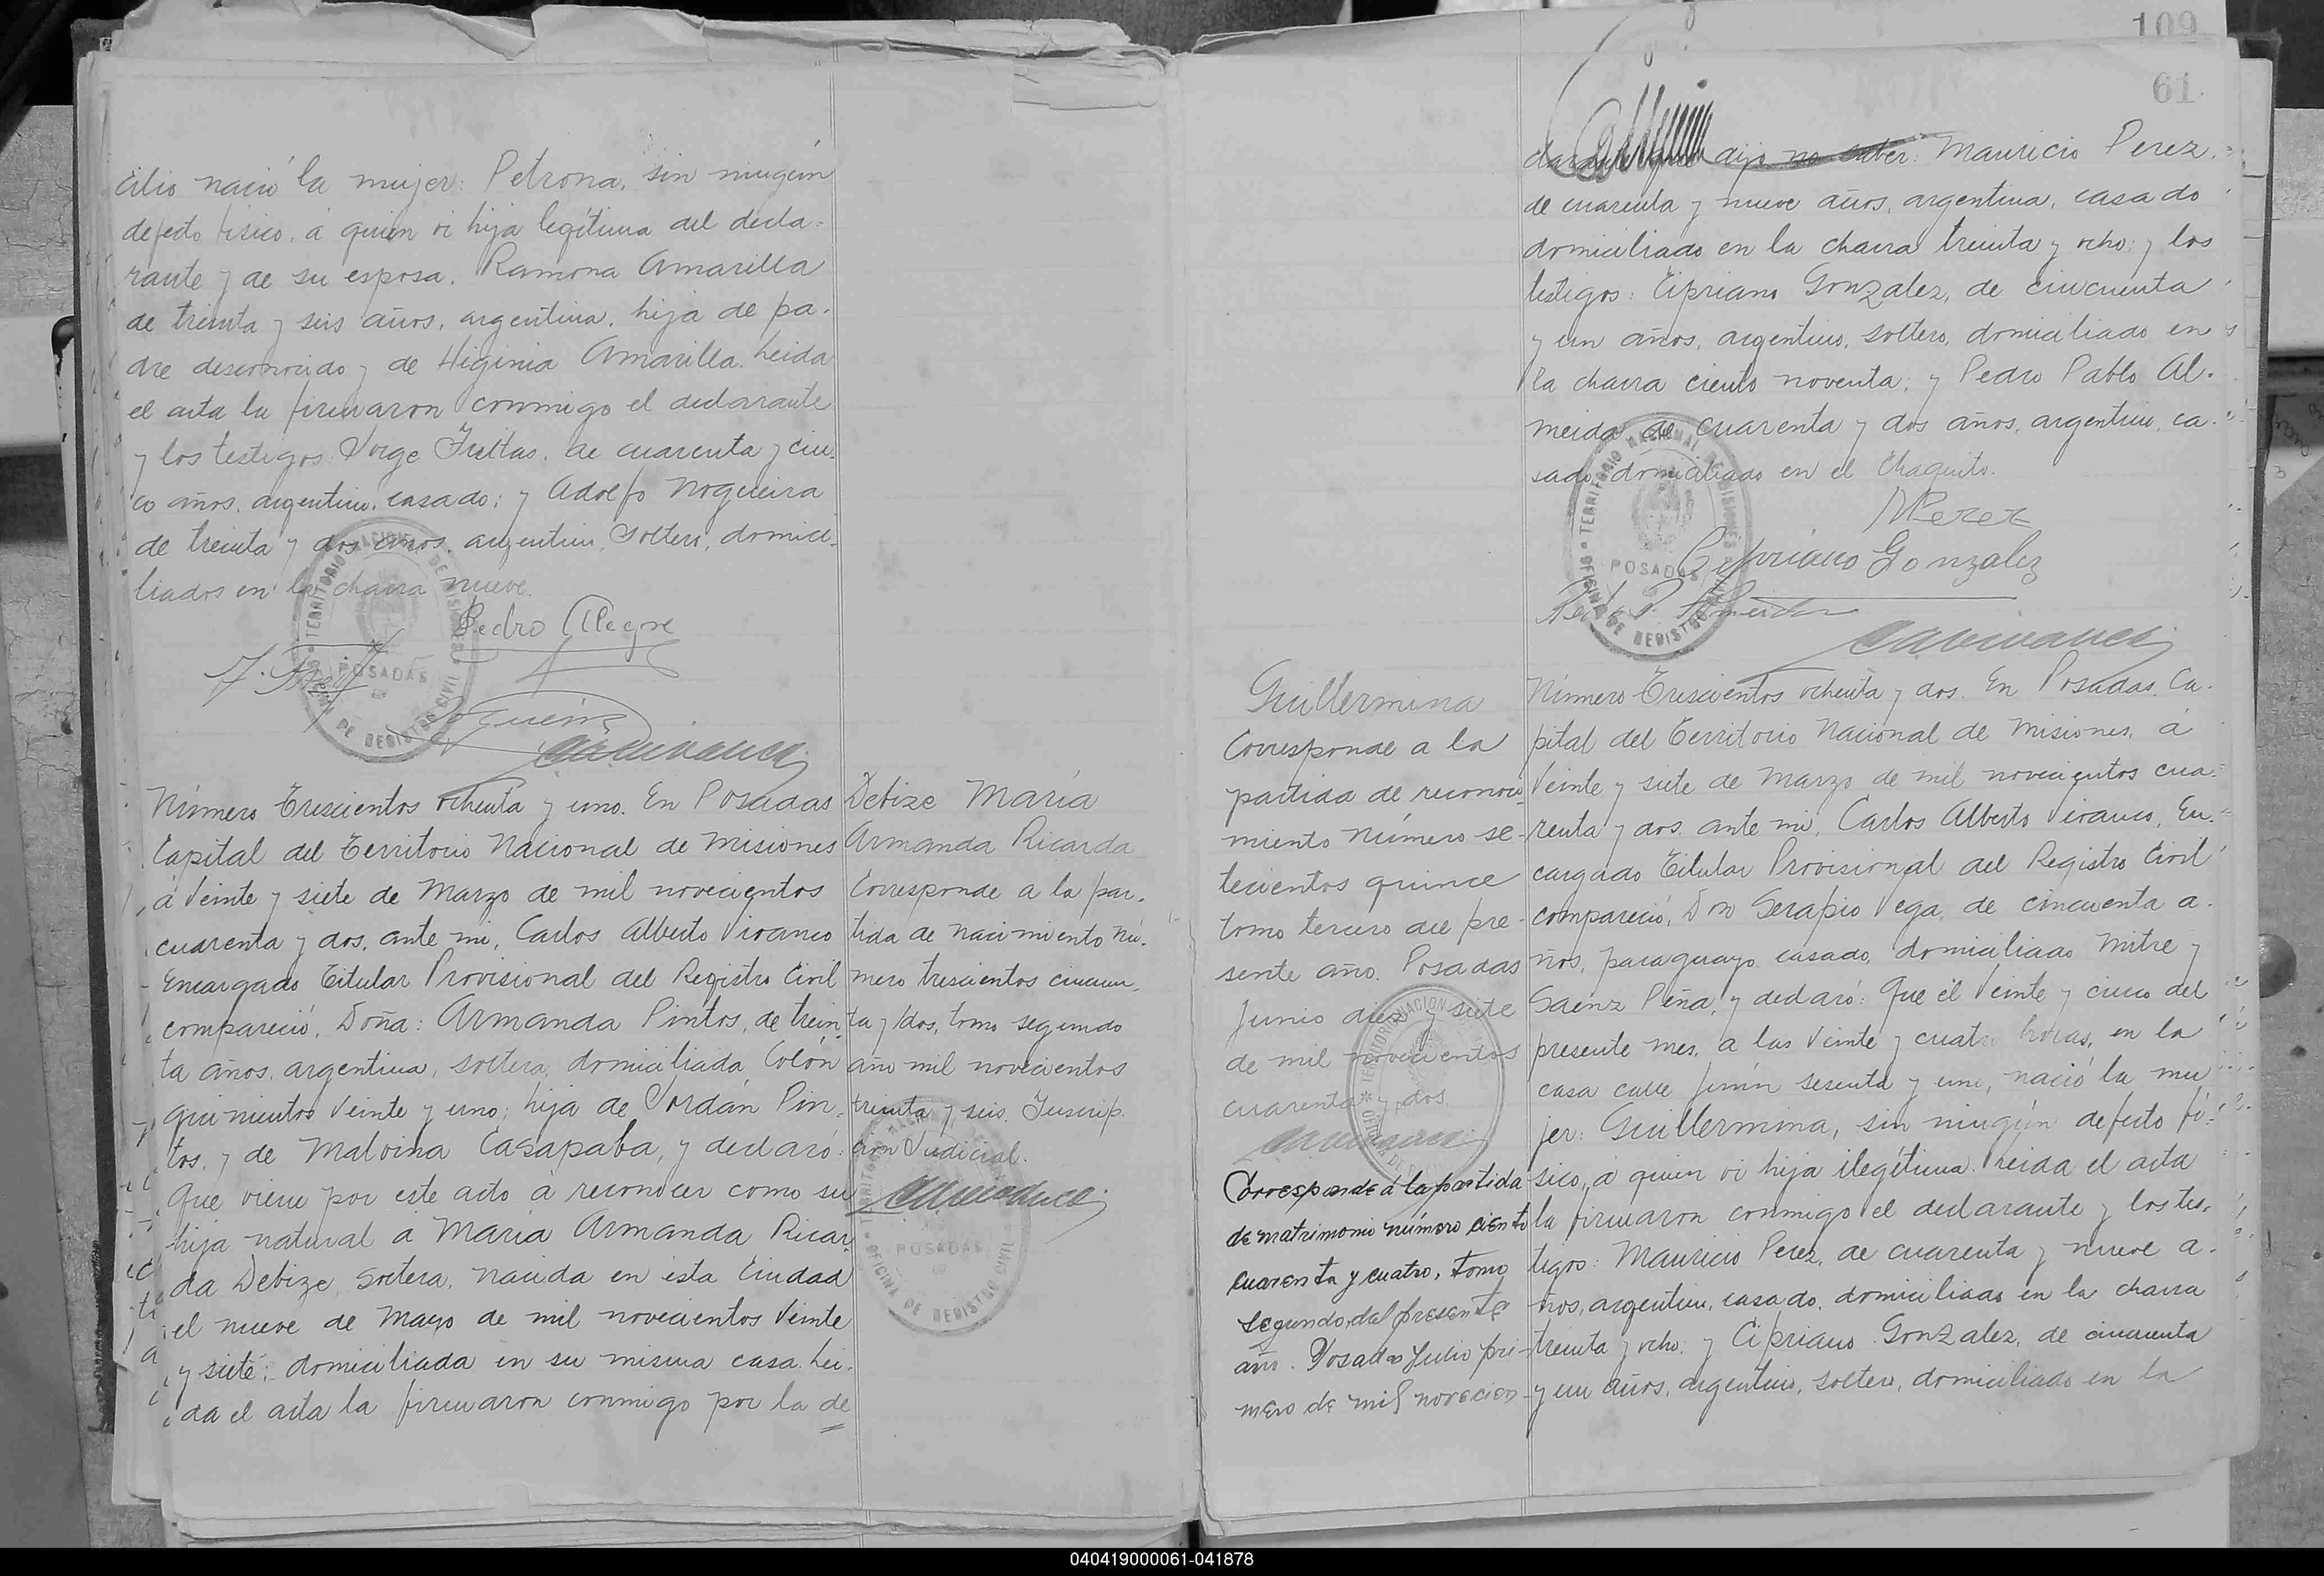 cilio nació la mujer: Petrona, sin ningún
defecto físico, á quien vi hija legítima del decla-
rante y de su esposa, Ramona Amarilla
de treinta y seis años, argentina, hija de pa-
dre desconocido y de Higinia Amarilla. Leida
el acta la firmaron conmigo el declarante
y los testigos Jorge Freitas, de cuarenta y cin-
co años, argentino, casado; y Adolfo Nogueira
de treinta y dos años, argentino, soltero, domici-
liados en la chacra nueve.
Pedro Alegre
Número Trescientos ochenta y uno. En Posadas
Capital del Territorio Nacional de Misiones
á Veinte y siete de Marzo de mil novecientos
cuarenta y dos, ante mi, Carlos Alberto Vivanco
Encargado Titular Provisional del Registro Civil
compareció, Doña: Armanda Pintos, de trein-
ta años, argentina, soltera, domiciliada Colón
quinientos veinte y uno; hija de Jordán Pin-
tos, y de Malvina Casapaba, y declaró:
Que viene por este acto a reconocer como su
hija natural a María Armanda Ricar-
da Debize, soltera, nacida en esta Ciudad
el nueve de Mayo de mil novecientos Veinte
y siete; domiciliada en su misma casa. Lei-
da el acta la firmaron conmigo por la de
Debize María
Armanda Ricarda
Corresponde a la par-
tida de nacimiento Nú-
mero trescientos cincuen-
ta y dos, tomo segundo
año mil novecientos
treinta y seis. Inscrip-
ción Judicial.
TERRITORIO NACIONAL DE MISIONES
POSADAS
OFICINA DE REGISTRO CIVIL
109
61
clarante que dijo no saber: Mauricio Perez,
de cuarenta y nueve años, argentina, casado
domiciliado en la chacra treinta y ocho; y los
testigos: Cipriano Gonzalez, de cincuenta
y un años, argentino, soltero, domiciliado en
la chacra ciento noventa; y Pedro Pablo Al-
meida, de cuarenta y dos años, argentino, ca-
sado, domiciliado en el Chaquito.
MPerez
Cipriano Gonzalez
Pedro P. Almeida
Guillermina
Corresponde a la
partida de reconoci-
miento Número se-
tecientos quince
tomo tercero del pre-
sente año. Posadas
Junio diez y siete
de mil novecientos
cuarenta y dos.
Corresponde á la partida
de matrimonio número ciento
cuarenta y cuatro, tomo
segundo, del presente
año. Posadas Julio pri-
mero de mil novecien-
Número Trescientos ochenta y dos. En Posadas, Ca-
pital del Territorio Nacional de Misiones, á
Veinte y siete de Marzo de mil novecientos cua-
renta y dos, ante mi, Carlos Alberto Vivanco, En-
cargado Titular Provisional del Registro Civil
compareció, Don Serapio Vega, de cincuenta a-
ños, paraguayo, casado, domiciliado Mitre y
Saénz Peña, y declaró: Que el Veinte y cinco del
presente mes, a las Veinte y cuatro horas, en la
casa calle Junín sesenta y uno, nació la mu
jer: Guillermina, sin ningún defecto fí-
sico, á quien vi hija ilegítima. Leida el acta
la firmaron conmigo el declarante y los tes-
tigos: Mauricio Perez, de cuarenta y nueve a-
ños, argentino, casado, domiciliado en la chacra
treinta y ocho; y Cipriano Gonzalez, de cincuenta
y un años, argentino, soltero, domiciliado en la
040419000061-041878